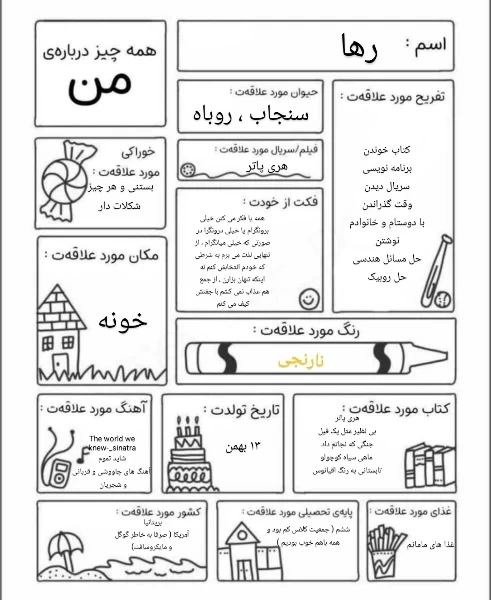 همه چیز درباره‌ی
من
اسم :
رها
حیوان مورد علاقه‌ت :
سنجاب ، روباه
تفریح مورد علاقه‌ت :
کتاب خوندن
برنامه نویسی
سریال دیدن
وقت گذراندن
با دوستام و خانوادم
نوشتن
حل مسائل هندسی
حل روبیک
خوراکی
مورد علاقه‌ت :
بستنی و هر چیز
شکلات دار
فیلم/سریال مورد علاقه‌ت :
هری پاتر
فکت از خودت :
همه یا فکر می کنن خیلی
برونگرام یا خیلی درونگرا در
صورتی که خیلی میانگرام ، از
تنهایی لذت می برم به شرطی
که خودم انتخابش کنم نه
اینکه تنهام بزارن ، از جمع
هم عذاب نمی کشم با جفتش
کیف می کنم
مکان مورد علاقه‌ت :
خونه
رنگ مورد علاقه‌ت :
نارنجی
آهنگ مورد علاقه‌ت :
The world we
knew-_sinatra
شاید تموم
آهنگ های چاووشی و قربانی
و شجریان
تاریخ تولدت :
۱۳ بهمن
کتاب مورد علاقه‌ت :
هری پاتر
بی نظیر مثل یک فیل
جنگی که نجاتم داد
ماهی سیاه کوچولو
تابستانی به رنگ اقیانوس
کشور مورد علاقه‌ت :
بریتانیا
آمریکا ( صرفا به خاطر گوگل
و مایکروسافت)
پایه‌ی تحصیلی مورد علاقه‌ت :
ششم ( جمعیت کلاس کم بود و
همه باهم خوب بودیم )
غذای مورد علاقه‌ت :
غذا های مامانم